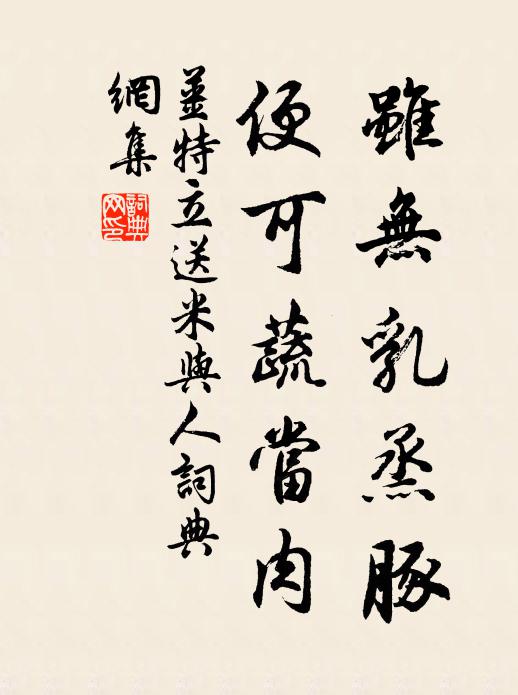 雖無乳烝豚
便可蔬當肉
姜特立送米與人詞典
網集
詞典
网印